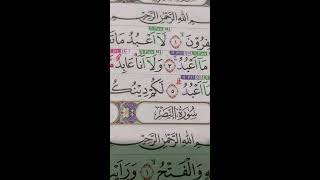 بِسْمِ اللَّهِ الرَّحْمَٰنِ الرَّحِيمِ
ـفِرُونَ ١ لَا أَعْبُدُ مَا تَـ
مَا أَعْبُدُ ٣ وَلَا أَنَا عَابِدٌ مَّـ
مَا أَعْبُدُ ٥ لَكُمْ دِينُكُـ
سُورَةُ النَّصْرِ
بِسْمِ اللَّهِ الرَّحْمَٰنِ الرَّحِيمِ
وَالْفَتْحُ ١ وَرَأَيْـ